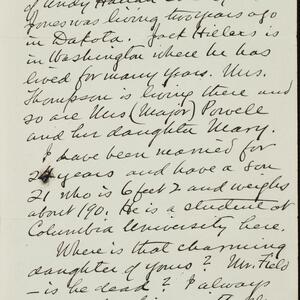 of Andy
Jones was living two years ago
in Dakota. Jack Hillers is
in Washington where he has
lived for many years. Mrs.
Thompson is living there and
so are Mrs (Major) Powell
and her daughter Mary.
I have been married for
24 years and have a son
21 who is 6 feet 2 and weighs
about 190. He is a student at
Columbia University here.
Where is that charming
daughter of yours? Mr. Field
– is he dead? I always